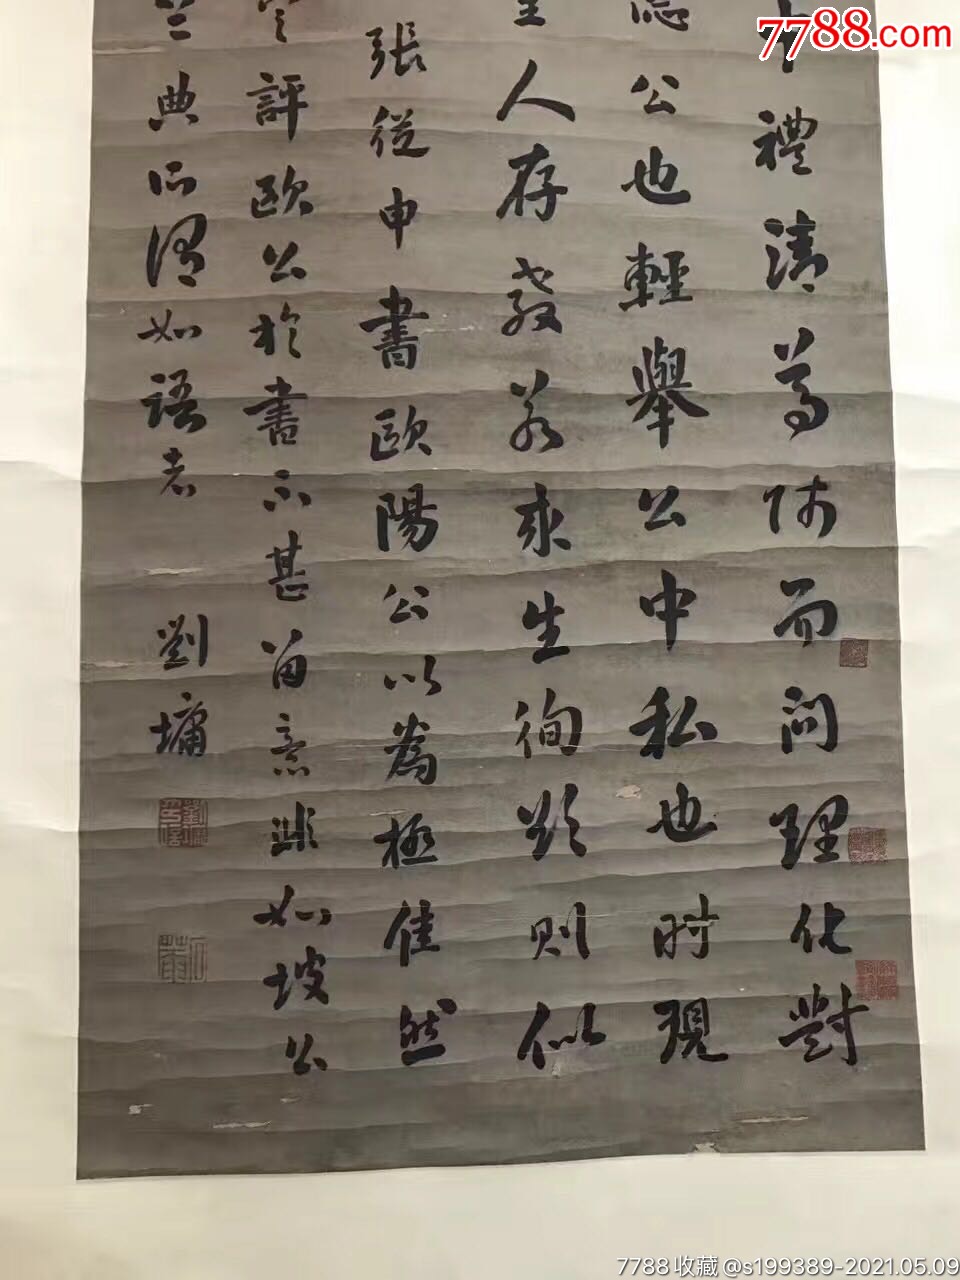 7788.com
十禮清尊師而问理化對
公也輕舉公中私也时現
人存發若求生徇欲则似
張從申書歐陽公以為極佳然
評歐公於書不甚留意非如坡公
典所謂如語者
劉墉
7788收藏@s199389-2021.05.09